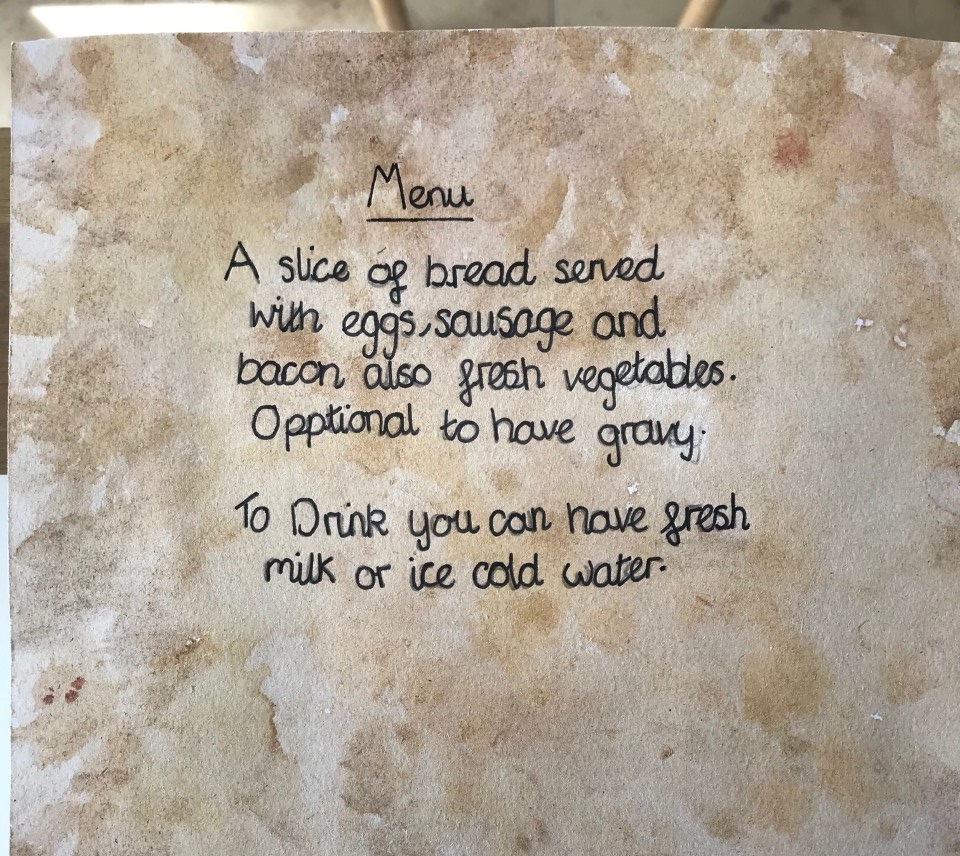 Menu
A slice of bread served
with eggs, sausage and
bacon also fresh vegetables.
Opptional to have gravy.
To Drink you can have fresh
milk or ice cold water.